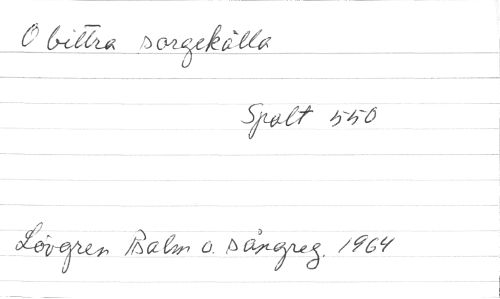 O bittra sorgekälla
Spalt 550
Lövgren Psalm o. sångreg. 1964